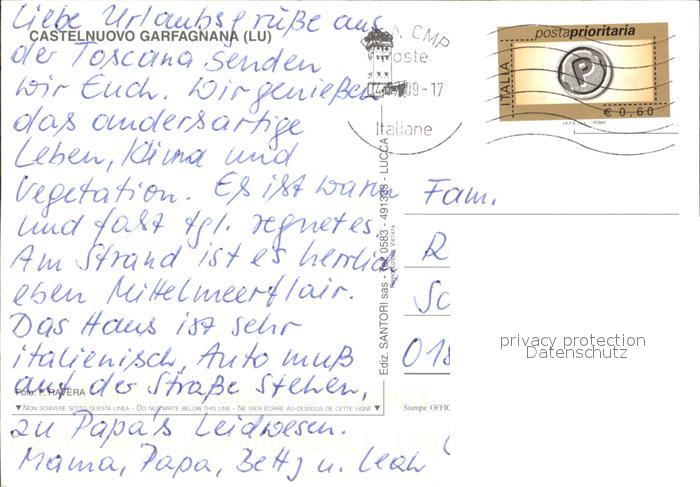 Liebe Urlaubsgrüße aus
CASTELNUOVO GARFAGNANA (LU)
der Toscana senden
wir Euch. Wir genießen
das andersartige
Leben, Klima und
Vegetation. Es ist warm
und fast tgl. regnet es.
Am Strand ist es herrlich
eben Mittelmeerflair.
Das Haus ist sehr
italienisch, Auto muß
auf der Straße stehen,
Foto: F. RAVERA
▼ NON SCRIVERE SOTTO QUESTA LINEA - DO NOT WRITE BELOW THIS LINE - NE RIEN ÉCRIRE AU-DESSOUS DE CETTE LIGNE ▼
zu Papa's Leidwesen.
Mama, Papa, Betty u. Leah
Ediz. SANTORI sas - Tel. 0583 - 491383 - LUCCA
CMP
Poste
09-17
Italiane
postaprioritaria
ITALIA
P
€ 0,60
I.P.Z.S. S.p.A. ROMA
Fam.
R
Sc
018
privacy protection
Datenschutz
Stampa: OFFIC